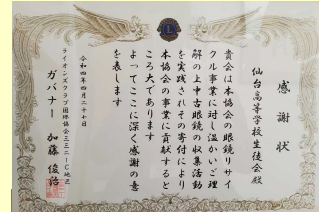 感謝状
仙台高等学校生徒会殿
貴会は本協会の眼鏡リサイ
クル事業に対し温かいご理
解の上中古眼鏡の収集活動
を実践されその寄付により
本協会の事業に貢献すると
ころ大であります
よってここに深く感謝の意
を表します
令和四年四月二十七日
ライオンズクラブ国際協会三三二-C地区
ガバナー 加藤俊治